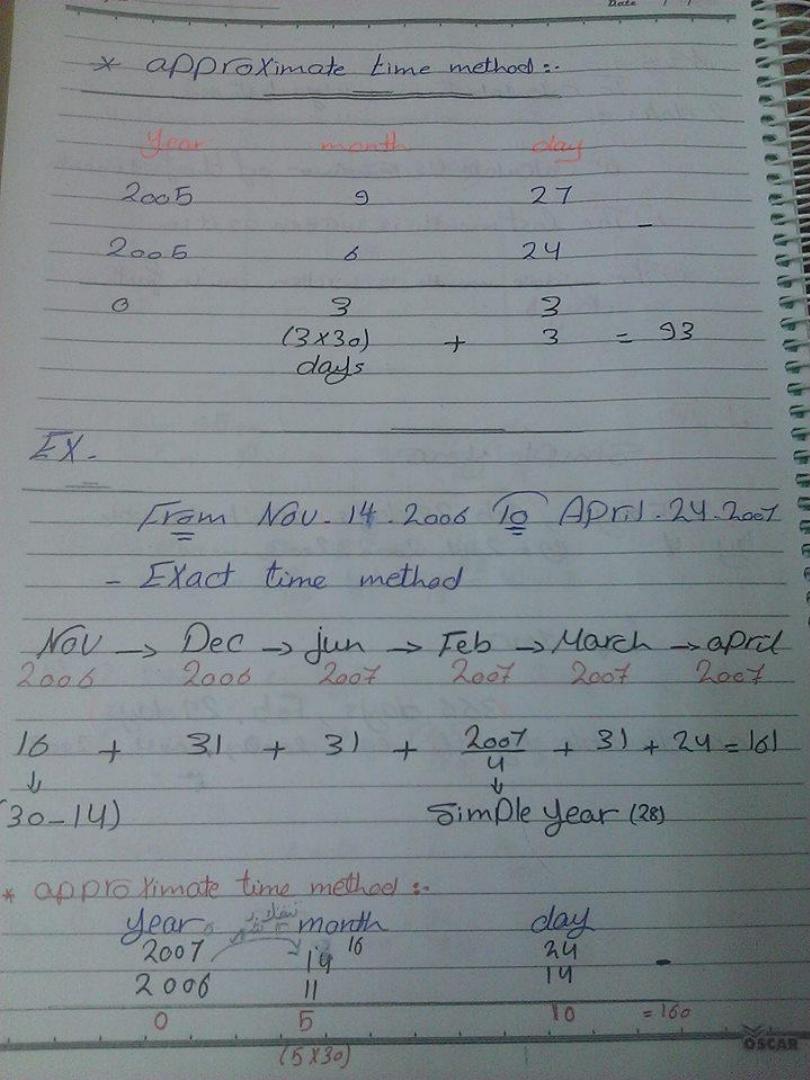 Date / /
* approximate time method :-
year month day
2005 9 27
-
2005 6 24
0 3 3
(3×30) + 3 = 93
days
EX-
From Nov. 14. 2006 To April. 24. 2007
- Exact time method
Nov → Dec → jun → Feb → March → april
2006 2006 2007 2007 2007 2007
16 + 31 + 31 + 2007/4 + 31 + 24 = 161
↓ ↓
(30-14) Simple year (28)
* approximate time method :-
year month day
2007 14 16 24
-
2006 11 14
0 5 10 = 160
(5×30)
OSCAR